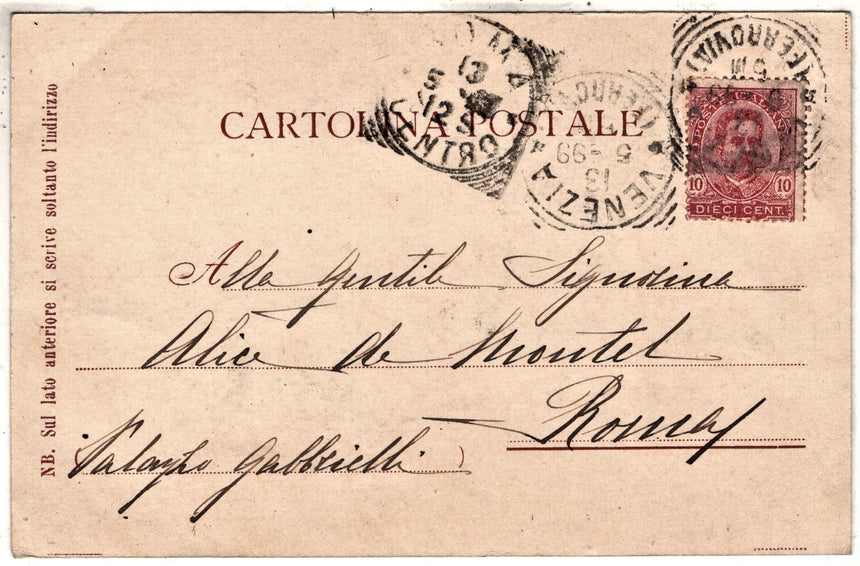 CARTOLINA POSTALE
VENEZIA
(FERROVIA)
13
5 -99
(FERROVIA)
5 M
POSTE ITALIANE
10 10
DIECI CENT.
Alla Gentile Signorina
Alice de Montel
Roma
Palazzo Gabrielli
NB. Sul lato anteriore si scrive soltanto l'indirizzo